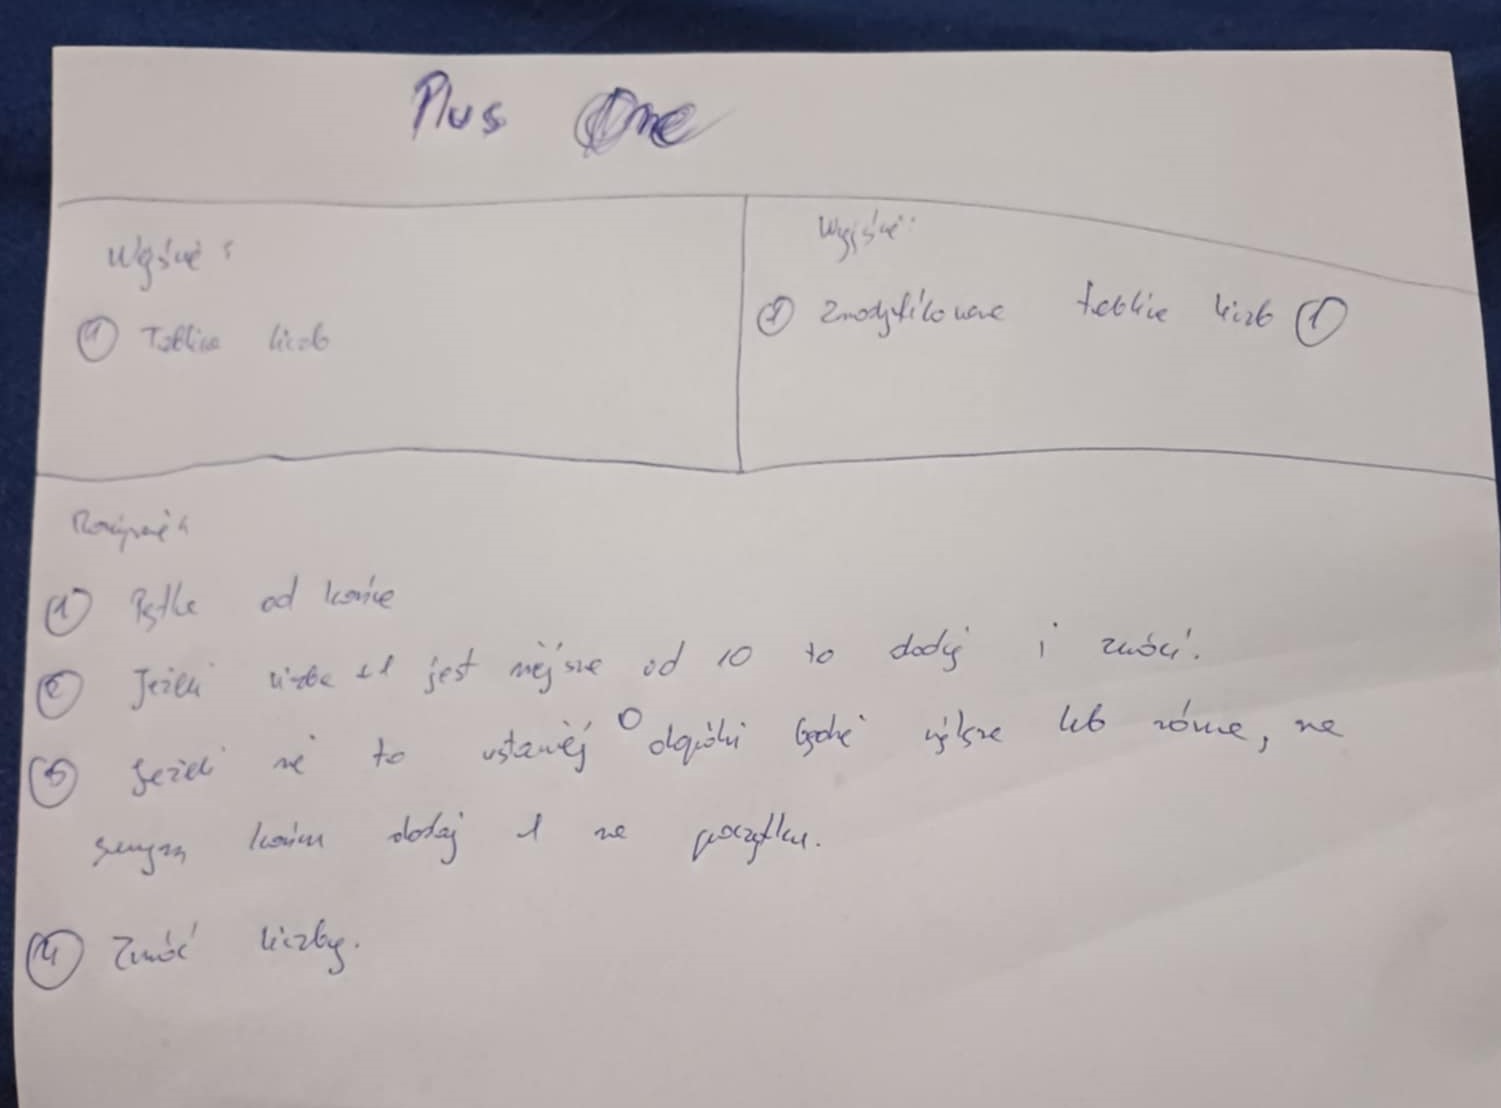 Plus One
Wejście:
① Tablica liczb
Wyjście:
① Zmodyfikowana tablica liczb ①
Rozwiązanie:
① Pętla od końca
② Jeżeli liczba +1 jest mniejsza od 10 to dodaj i zwróć.
③ Jeżeli nie to ustawiaj 0 dopóki będzie większe lub równe, na
samym końcu dodaj 1 na początku.
④ Zwróć liczby.